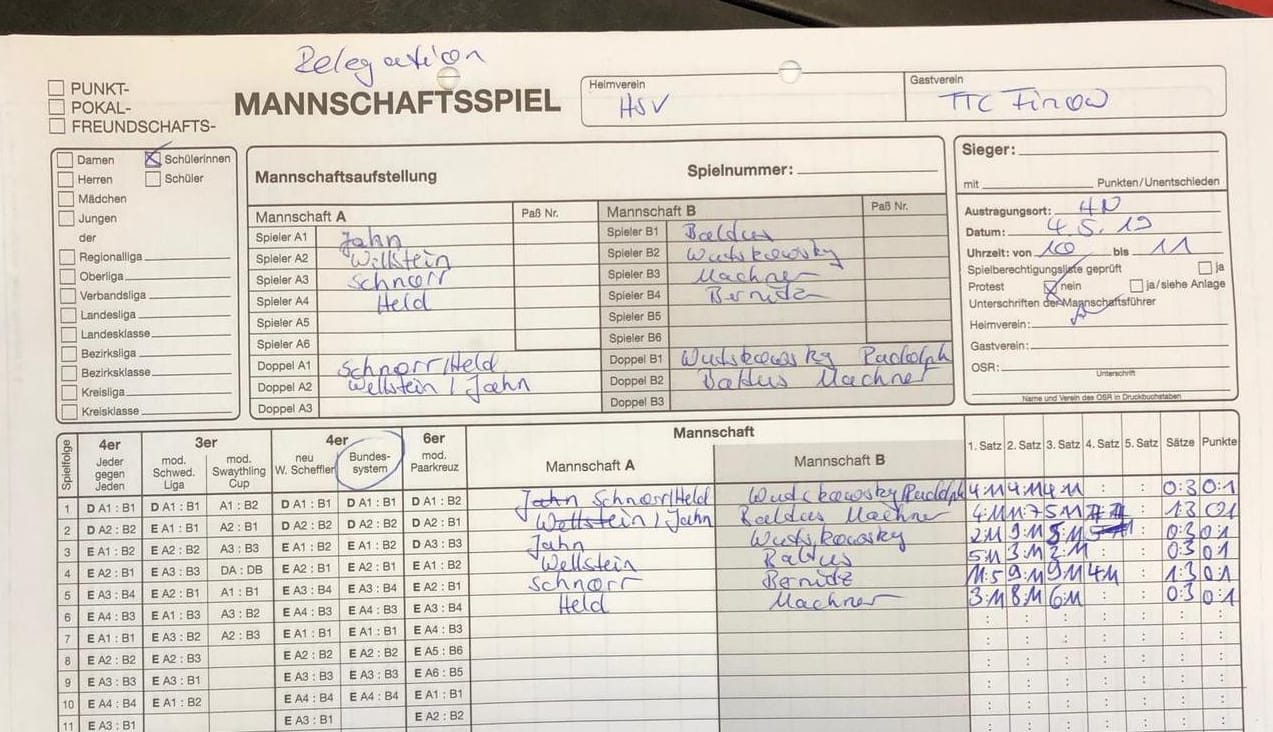 Relegation
PUNKT-
POKAL-
FREUNDSCHAFTS-
MANNSCHAFTSSPIEL
Heimverein
HSV
Gastverein
TTC Finow
Damen Schülerinnen
Herren Schüler
Mädchen
Jungen
der
Regionalliga
Oberliga
Verbandsliga
Landesliga
Landesklasse
Bezirksliga
Bezirksklasse
Kreisliga
Kreisklasse
Mannschaftsaufstellung Spielnummer:
Mannschaft A Paß Nr. Mannschaft B Paß Nr.
Spieler A1 Jahn Spieler B1 Baldus
Spieler A2 Wellstein Spieler B2 Wutskowsky
Spieler A3 Schnorr Spieler B3 Machner
Spieler A4 Held Spieler B4 Bernitz
Spieler A5 Spieler B5
Spieler A6 Spieler B6
Doppel A1 Schnorr/Held Doppel B1 Wutskowsky Padolph
Doppel A2 Wellstein / Jahn Doppel B2 Baldus Machner
Doppel A3 Doppel B3
Sieger:
mit Punkten/Unentschieden
Austragungsort: HN
Datum: 4.5.19
Uhrzeit: von 10 bis 11
Spielberechtigungsliste geprüft ja
Protest nein ja/siehe Anlage
Unterschriften der Mannschaftsführer
Heimverein:
Gastverein:
OSR:
Unterschrift
Name und Verein des OSR in Druckbuchstaben
Spielfolge
4er Jeder gegen Jeden
3er
mod. Schwed. Liga
mod. Swaythling Cup
4er
neu W. Scheffler
Bundes-system
6er mod. Paarkreuz
Mannschaft
Mannschaft A Mannschaft B 1. Satz 2. Satz 3. Satz 4. Satz 5. Satz Sätze Punkte
1 D A1 : B1 D A1 : B1 A1 : B2 D A1 : B1 D A1 : B1 D A1 : B2 Jahn Schnorr/Held Wutskowsky/Padolph 4:11 4:11 4:11 : : 0:3 0:1
2 D A2 : B2 D A2 : B2 A2 : B1 D A2 : B2 D A2 : B2 D A2 : B1 Wellstein / Jahn Baldus Machner 4:11 11:7 5:11 1:3 0:1
3 E A1 : B2 E A2 : B2 A3 : B3 E A1 : B2 E A1 : B2 D A3 : B3 Jahn Wutskowsky 2:11 9:11 5:11 0:3 0:1
4 E A2 : B1 E A3 : B3 DA : DB E A2 : B1 E A2 : B1 E A1 : B2 Wellstein Baldus 5:11 3:11 2:11 : : 0:3 0:1
5 E A3 : B4 E A2 : B1 A1 : B1 E A3 : B4 E A3 : B4 E A2 : B1 Schnorr Bernitz 11:5 9:11 9:11 4:11 : 1:3 0:1
6 E A4 : B3 E A1 : B3 A3 : B2 E A4 : B3 E A4 : B3 E A3 : B4 Held Machner 3:11 8:11 6:11 : : 0:3 0:1
7 E A1 : B1 E A3 : B2 A2 : B3 E A1 : B1 E A1 : B1 E A4 : B3 : : : : : : :
8 E A2 : B2 E A2 : B3 E A2 : B2 E A2 : B2 E A5 : B6 : : : : : : :
9 E A3 : B3 E A3 : B1 E A3 : B3 E A3 : B3 E A6 : B5 : : : : : : :
10 E A4 : B4 E A1 : B2 E A4 : B4 E A4 : B4 E A1 : B1 : : : : : : :
11 E A3 : B1 E A3 : B1 E A2 : B2 : : : : : : :